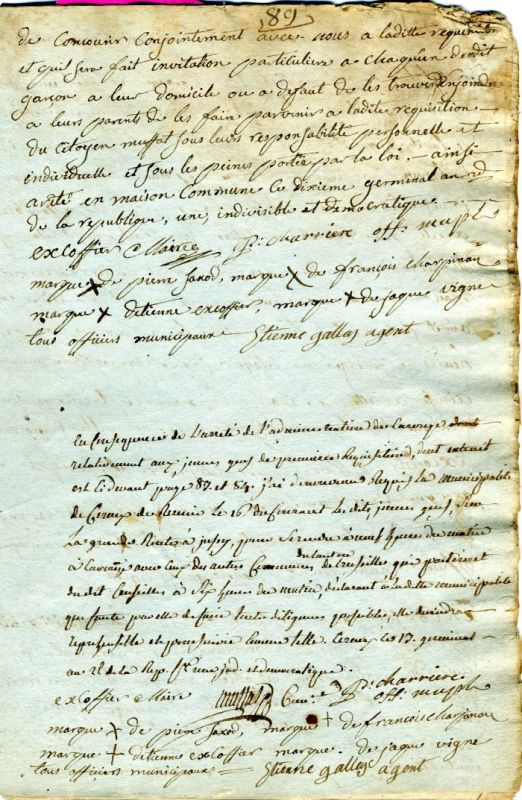 89
de concourir conjointement avec nous a ladite requisi
et qu'il sera fait invitation particuliere a chaqu'un dudit
garçon a leur domicile ou a defaut de les trouver enjoindre
a leurs parents de les faire parvenir a ladite requisition
du Citoyen muffat sous leurs responsabilité personnelle et
individuelle et sous les peines portée par la loi - ainsi
arété en maison Commune ce dixieme germinal an
de la republique, une, indivisible et democratique
excoffier Maire Bd charriere off. mupl
marque x de pierre Jaxod, marque x de françois charpinau
marque x detienne excoffier, marque x de jaque vigne
tous officiers municipaux Etienne gallay agent
En Consequence de L'arreté de l'administration de Carouge
relativement aux jeunes gens de premiere Requisition, dont extrait
est Cidevant page 83 et 84. j'ai Requis La municipalité
de de Reunir le 16 du Courant les dits jeunes gens,
La grande Route à jussy, pour Se rendre à neuf heures du matin
à Carouge avec Ceux des autres Communes du Canton de Cruseille qui partiront
du dit Cruseilles à Six heures du matin, déclarant à la ditte municipalité
que faute par elle de faire toute diligence possible, elle deviendra
reprehensible et poursuivie Comme telle. le 13. germinal
an 2d de la Rep. fse une ind. et democratique.
excoffier Maire muffat Bd charriere
off. mupl
marque x de pierre Jaxod, marque + de francois charpinau
marque + detienne excoffier marque de jaque vigne
tous officiers municipaux = Etienne gallay agent